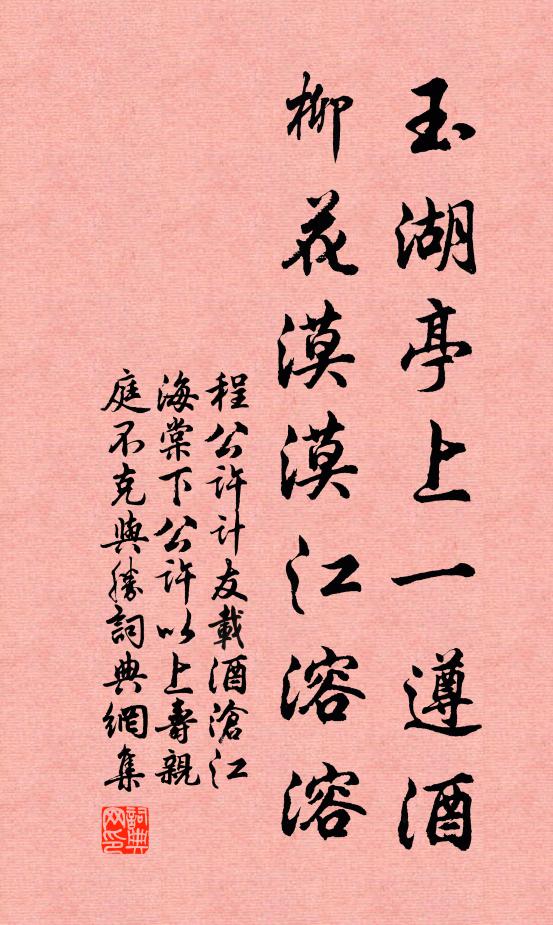 玉湖亭上一遵酒
柳花漠漠江溶溶
程公許計友載酒滄江
海棠下公許以上壽親
庭不克與勝詞典網集
詞典网印